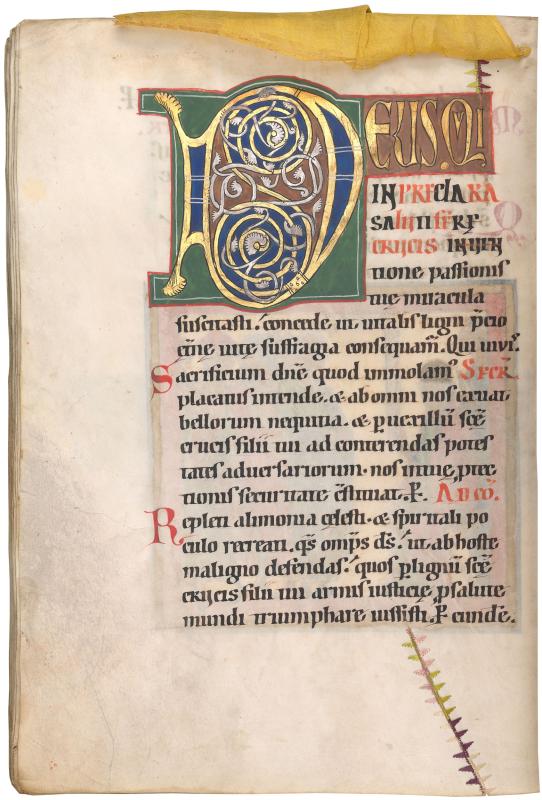 DEUS. QUI
IN PRECLARA
SALUTIFERE
CRUCIS INUEN
tione passionis
tue miracula
suscitasti. concede ut uitalis ligni p̄cio
et̄ne uite suffragia consequam̄. Qui uiui᷒.
Sacrificium dn̄e quod immolam᷒ SECR̄.
placatus intende. ut ab omni nos eruat
bellorum nequitia. & p uexillū sc̄e
crucis filii tui ad conterendas potes
tates aduersariorum. nos in tue ptec
tionis securitate c̄stituat. P̄. AD CŌ.
Repleti alimonia celesti. & spiritali po
culo recreati. qs̄ omps̄ ds̄. ut ab hoste
maligno defendas. quos p lignū sc̄e
crucis filii tui armis iusticie p salute
mundi triumphare iussisti. P̄ eundē.